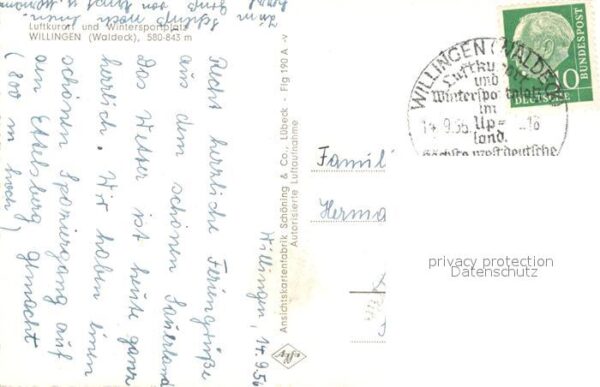 Luftkurort und Wintersportplatz
WILLINGEN (Waldeck), 580-843 m
Willingen, 14.9.56
Recht herrliche Feriengrüße
aus dem schönen Sauerland
Das Wetter ist heute ganz
herrlich. Wir haben einen
schönen Spaziergang auf
den Ettelsberg gemacht
(800 m hoch)
Ansichtskartenfabrik Schöning & Co., Lübeck - Flg 190 A -v
Autorisierte Luftaufnahme
WILLINGEN (WALDECK)
Luftkurort
und
Wintersportplatz
im
14.9.56 Up= -18
land.
Höchste westdeutsche
DEUTSCHE
BUNDESPOST
10
Famil
Herma
privacy protection
Datenschutz